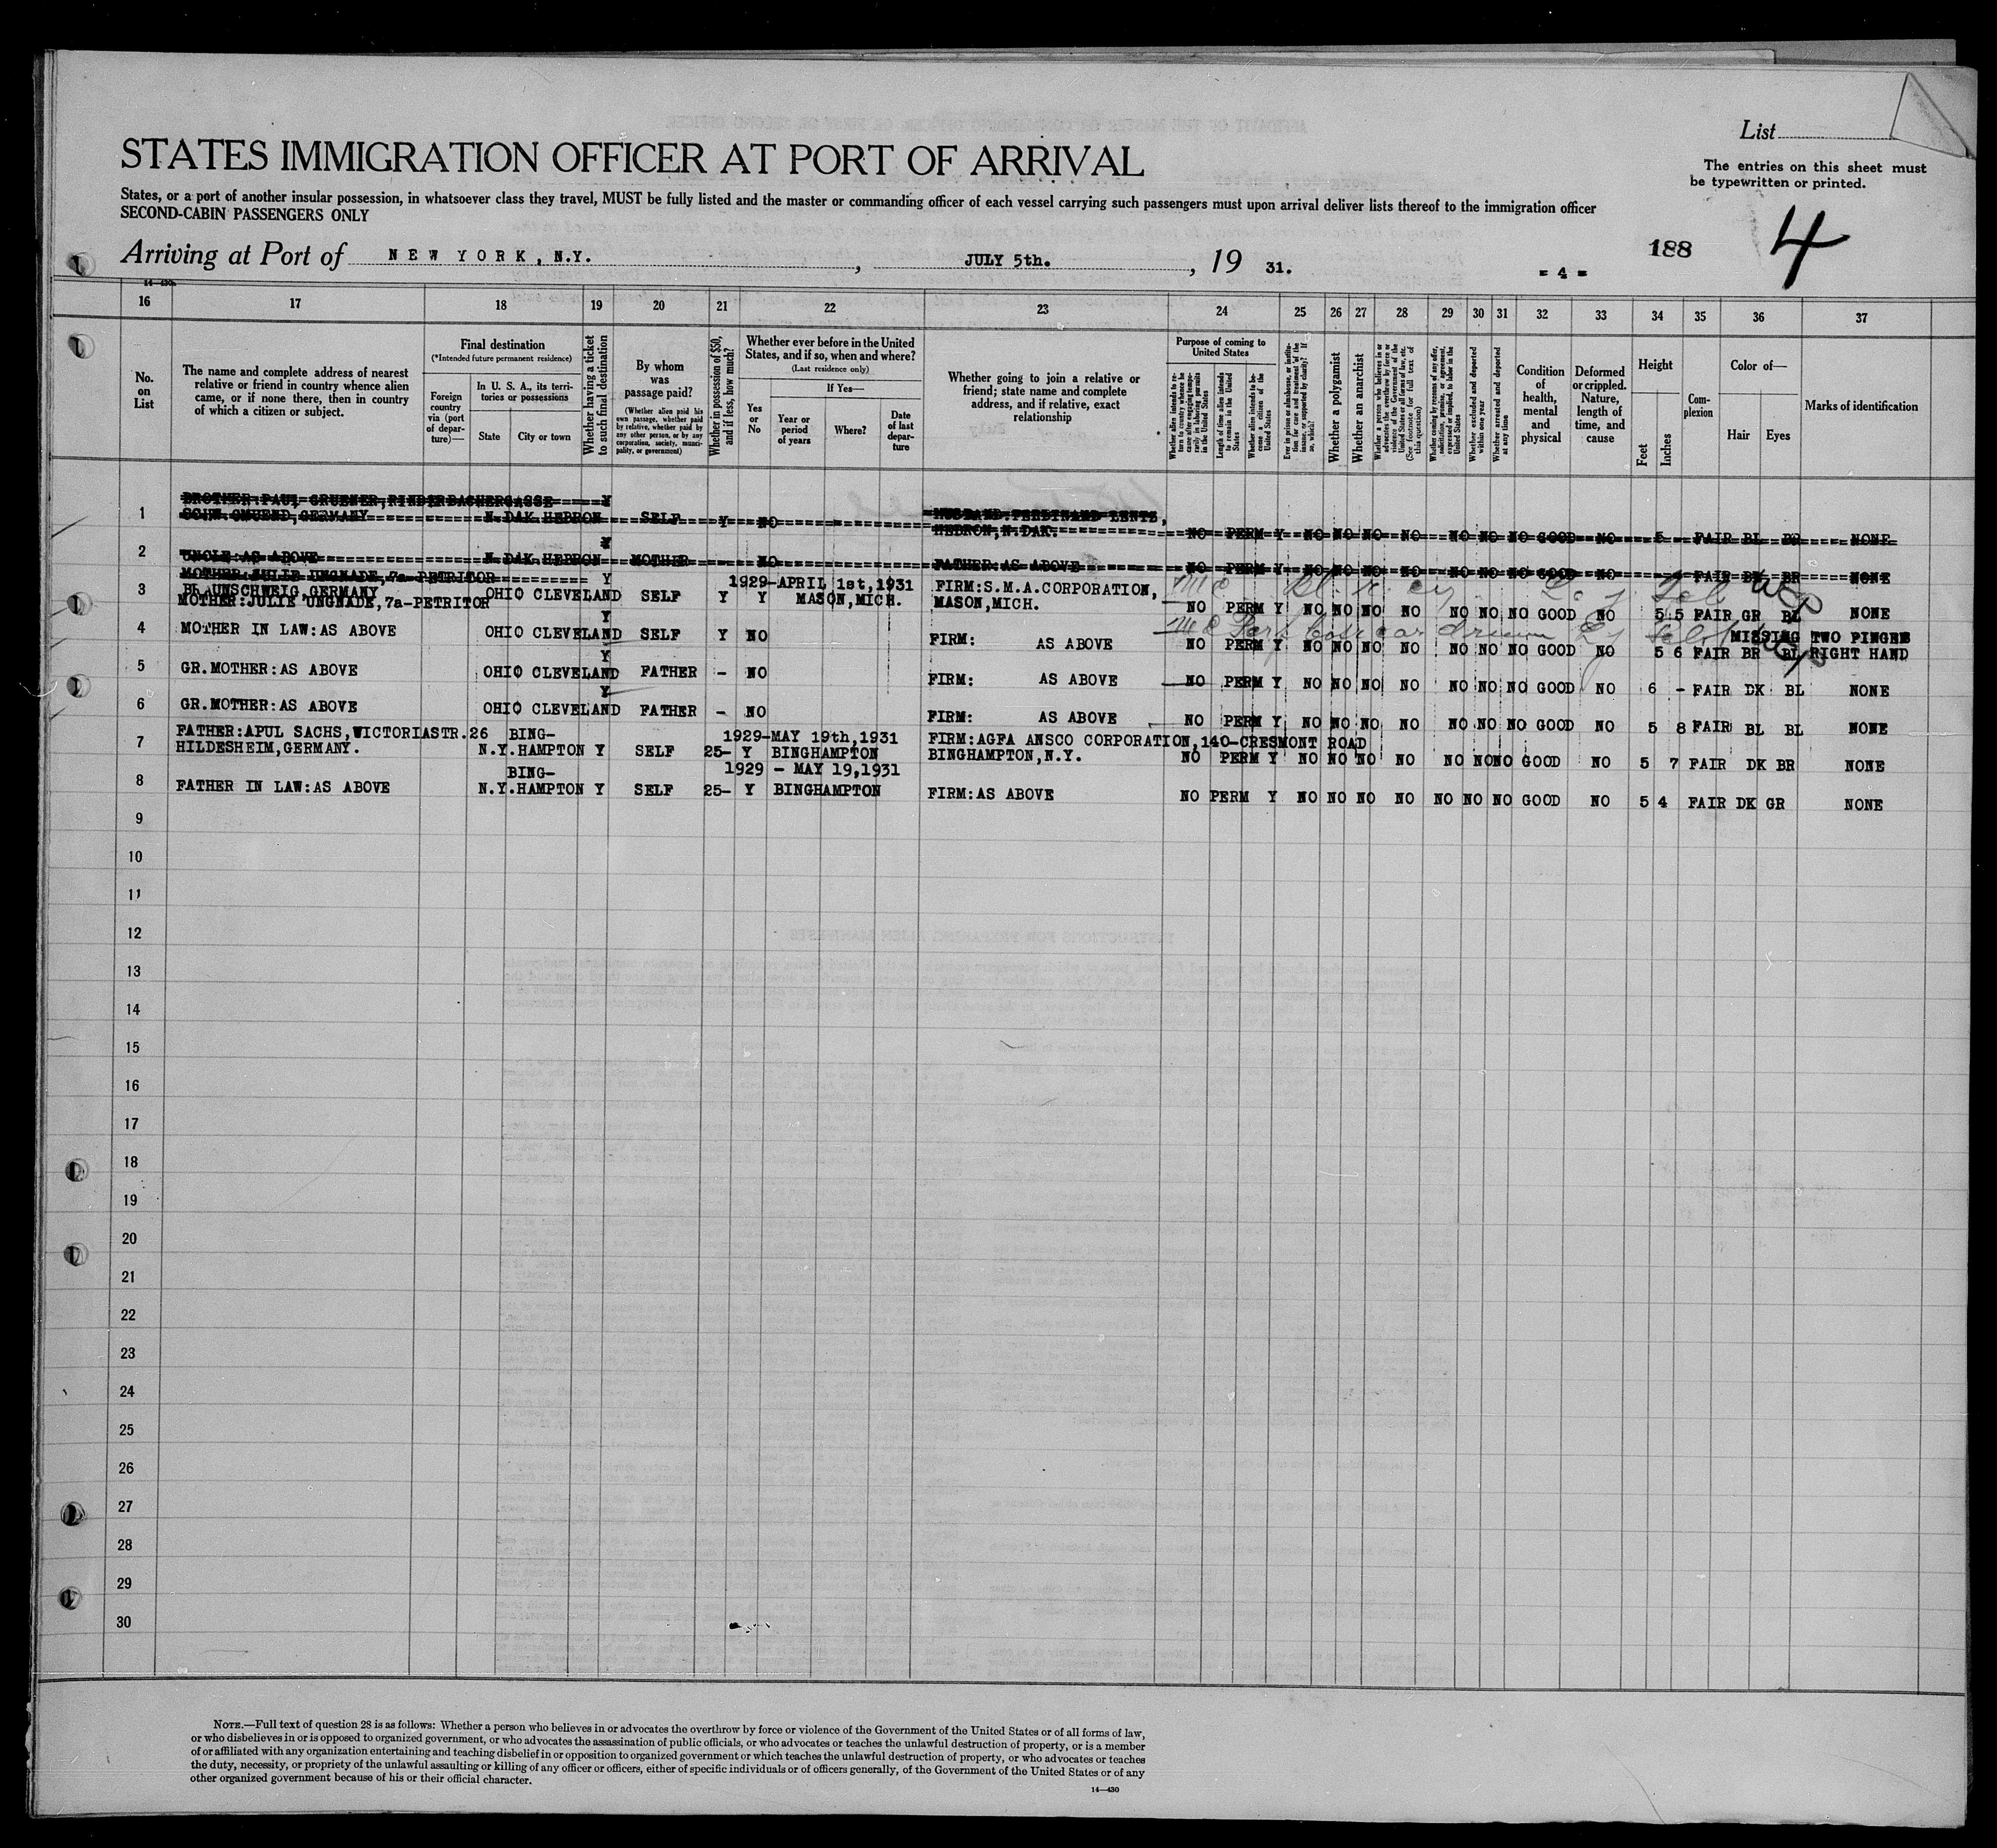 List
STATES IMMIGRATION OFFICER AT PORT OF ARRIVAL
The entries on this sheet must
be typewritten or printed.
States, or a port of another insular possession, in whatsoever class they travel, MUST be fully listed and the master or commanding officer of each vessel carrying such passengers must upon arrival deliver lists thereof to the immigration officer
SECOND-CABIN PASSENGERS ONLY
Arriving at Port of NEW YORK, N.Y. , JULY 5th. , 19 31.
= 4 = 188 4
14-430
16 17 18 19 20 21 22 23 24 25 26 27 28 29 30 31 32 33 34 35 36 37
No. on List
The name and complete address of nearest relative or friend in country whence alien came, or if none there, then in country of which a citizen or subject.
Final destination
(*Intended future permanent residence)
Foreign country via (port of departure)—
In U. S. A., its territories or possessions
State City or town
Whether having a ticket to such final destination
By whom was passage paid?
(Whether alien paid his own passage, whether paid by relative, whether paid by any other person, or by any corporation, society, municipality, or government)
Whether in possession of $50, and if less, how much?
Whether ever before in the United States, and if so, when and where?
(Last residence only)
Yes or No
If Yes—
Year or period of years
Where?
Date of last departure
Whether going to join a relative or friend; state name and complete address, and if relative, exact relationship
Purpose of coming to United States
Whether alien intends to return to country whence he came after engaging temporarily in laboring pursuits in the United States
Length of time alien intends to remain in the United States
Whether alien intends to become a citizen of the United States
Ever in prison or almshouse, or institution for care and treatment of the insane, or supported by charity? If so, which?
Whether a polygamist
Whether an anarchist
Whether a person who believes in or advocates the overthrow by force or violence of the Government of the United States or all forms of law, etc. (See footnote for full text of this question)
Whether coming by reasons of any offer, solicitation, promise, or agreement, expressed or implied, to labor in the United States
Whether excluded and deported within one year
Whether arrested and deported at any time
Condition of health, mental and physical
Deformed or crippled. Nature, length of time, and cause
Height
Feet Inches
Complexion
Color of—
Hair Eyes
Marks of identification
BROTHER:PAUL GRUENER,RINDERBACHERGASSE Y
1 SCHW.GMUEND,GERMANY N.DAK HEBRON SELF Y NO HUSBAND:FERDINAND LENTZ,
HEBRON,N.DAK. NO PERM Y NO NO NO NO NO NO NO GOOD NO 5 FAIR BL BR NONE
Y
2 UNCLE:AS ABOVE N.DAK HEBRON MOTHER - NO FATHER:AS ABOVE NO PERM Y NO NO NO NO NO NO NO GOOD NO FAIR DK BR NONE
MOTHER:JULIE UNGNADE,7a-PETRITOR Y 1929-APRIL 1st,1931 FIRM:S.M.A.CORPORATION,
3 BRAUNSCHWEIG,GERMANY OHIO CLEVELAND SELF Y Y MASON,MICH. MASON,MICH. NO PERM Y NO NO NO NO NO NO NO GOOD NO 5 5 FAIR GR BL NONE
MOTHER:JULIE UNGNADE,7a-PETRITOR
Y
4 MOTHER IN LAW:AS ABOVE OHIO CLEVELAND SELF Y NO FIRM: AS ABOVE NO PERM Y NO NO NO NO NO NO NO GOOD NO 5 6 FAIR BR BL MISSING TWO FINGER
RIGHT HAND
Y
5 GR.MOTHER:AS ABOVE OHIO CLEVELAND FATHER - NO FIRM: AS ABOVE NO PERM Y NO NO NO NO NO NO NO GOOD NO 6 - FAIR DK BL NONE
Y
6 GR.MOTHER:AS ABOVE OHIO CLEVELAND FATHER - NO FIRM: AS ABOVE NO PERM Y NO NO NO NO NO NO NO GOOD NO 5 8 FAIR BL BL NONE
FATHER:APUL SACHS,WICTORIASTR.26 BING- 1929-MAY 19th,1931 FIRM:AGFA ANSCO CORPORATION,140-CRESMONT ROAD
7 HILDESHEIM,GERMANY. N.Y.HAMPTON Y SELF 25- Y BINGHAMPTON BINGHAMPTON,N.Y. NO PERM Y NO NO NO NO NO NO NO GOOD NO 5 7 FAIR DK BR NONE
BING- 1929 - MAY 19,1931
8 FATHER IN LAW:AS ABOVE N.Y.HAMPTON Y SELF 25- Y BINGHAMPTON FIRM:AS ABOVE NO PERM Y NO NO NO NO NO NO NO GOOD NO 5 4 FAIR DK GR NONE
9
10
11
12
13
14
15
16
17
18
19
20
21
22
23
24
25
26
27
28
29
30
NOTE.—Full text of question 28 is as follows: Whether a person who believes in or advocates the overthrow by force or violence of the Government of the United States or of all forms of law,
or who disbelieves in or is opposed to organized government, or who advocates the assassination of public officials, or who advocates or teaches the unlawful destruction of property, or is a member
of or affiliated with any organization entertaining and teaching disbelief in or opposition to organized government or which teaches the unlawful destruction of property, or who advocates or teaches
the duty, necessity, or propriety of the unlawful assaulting or killing of any officer or officers, either of specific individuals or of officers generally, of the Government of the United States or of any
other organized government because of his or their official character.
14—430